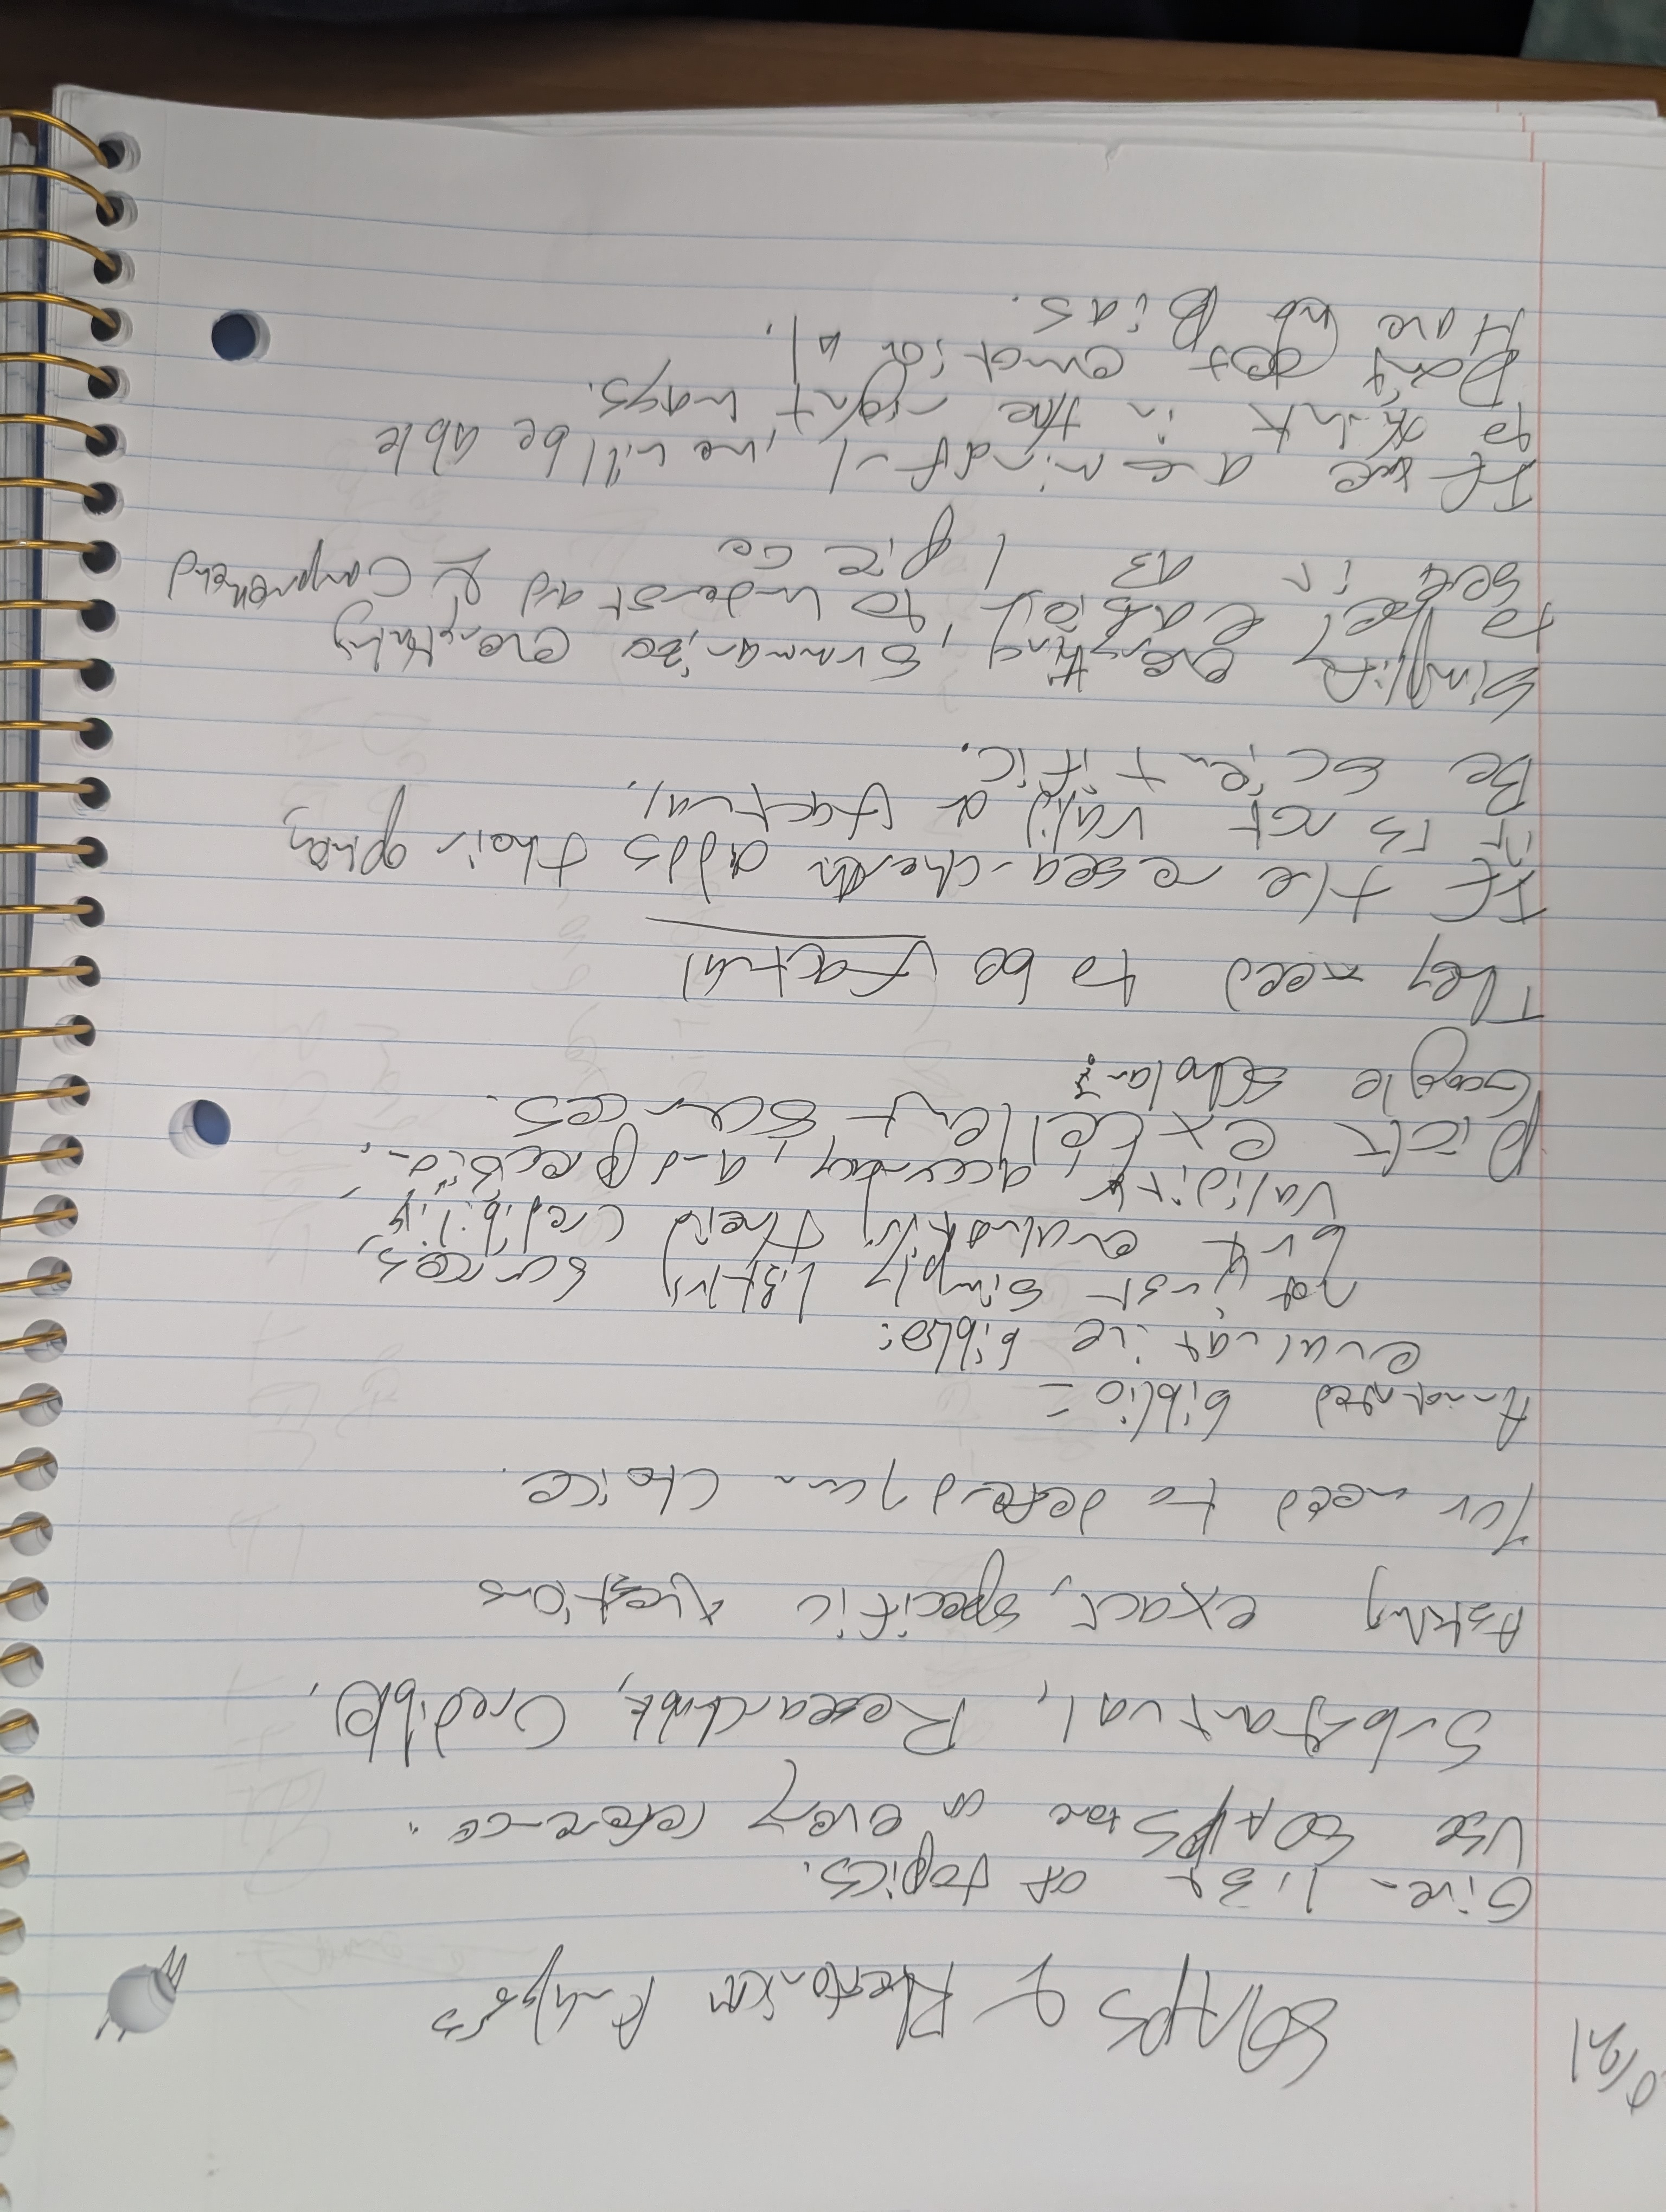 0/21
SOAPS & Rhetorical Analysis
Given list of topics.
Use SOAPStone on every reference.
Substantual, Researchable, Credible.
Asking exact, specific questions
You need to defend your choice.
Annotated biblio =
evaluative biblio:
not just simply listing sources,
but evaluating their credibility,
validity, accuracy, and precision.
Pick excellent sources.
Google Scholar?
They need to be factual
If the researcher adds their opinion,
it is not valid or factual.
Be scientific.
Simplify everything, summarize everything
to be easier to understand & comprehend
see it as 1 piece
If we are mindful, we will be able
to think in the right ways.
Don't get emotional.
Have no Bias.